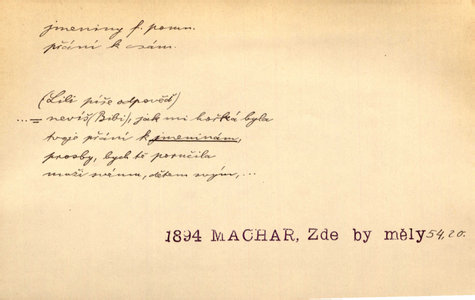 jmeniny f. pomn.
přání k osám.
(Lili píše odpověď)
...= nevíš (Bibi), jak mi hořká byla
tvoje přání k jmeninám,
prosby, bych tě poručila
muži svému, dětem svým,...
1894 MACHAR, Zde by měly 54,20.